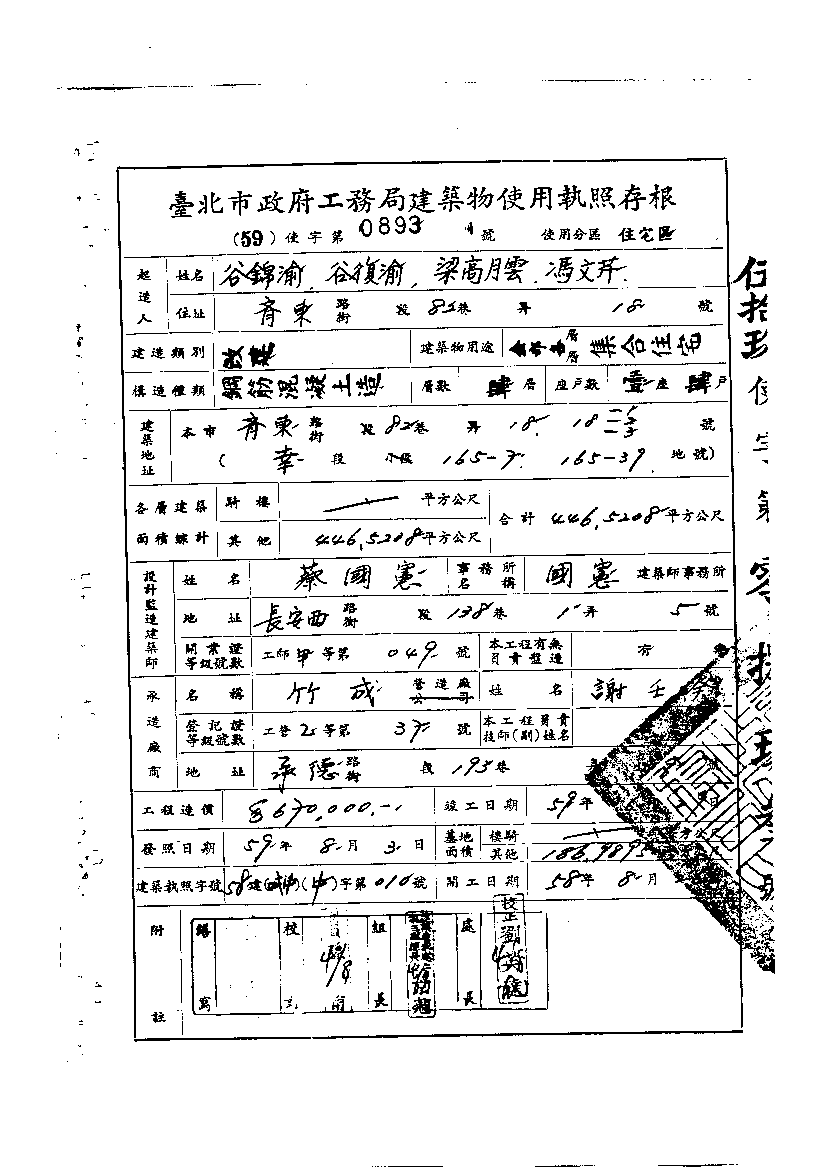 臺北市政府工務局建築物使用執照存根
(59)使字第0893號 使用分區 住宅區
起造人 姓名 谷錦渝、谷復渝、梁高月雲、馮文芹
住址 齊東 路街 段 82巷 弄 18 號
建造類別 改建 建築物用途 層層 集合住宅
構造種類 鋼筋混凝土造 層數 肆層 座戶數 壹座 肆戶
建築地址 本市 齊東 路街 段 82巷 弄 18. 18 -1 -2 -3 號
(幸 段 小段 165-7. 165-39. 地號)
各層建築面積總計 騎樓 平方公尺 合計 446.5208平方公尺
其他 446.5208平方公尺
設計監造建築師 姓名 蔡國憲 事務所名稱 國憲 建築師事務所
地址 長安西 路街 段 138巷 1弄 5號
開業證等級號數 工師甲等第 049 號 本工程有無負責監造 有
承造廠商 名稱 竹成 營造廠公司 姓名 謝壬
登記證等級號數 工營乙等第 37 號 本工程負責技師(副)姓名
地址 承德 路街 段 195巷
工程造價 670,000.- 竣工日期 59年 日
發照日期 59年 8月 3日 基地面積 樓騎
其他
建築執照字號 58建( )字第010號 開工日期 58年 8月
附註 繕寫 校 組長 處長
校正